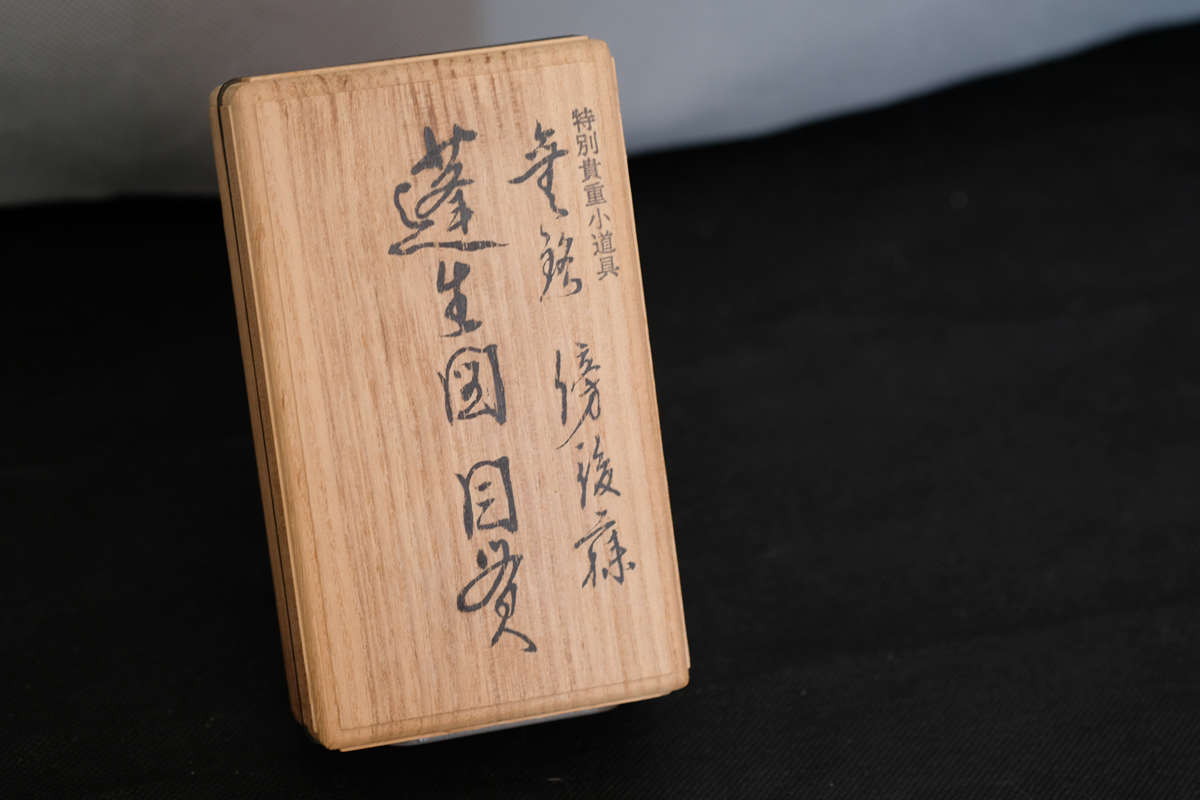 特別貴重小道具
無銘 傍後藤
蓬生図 目貫